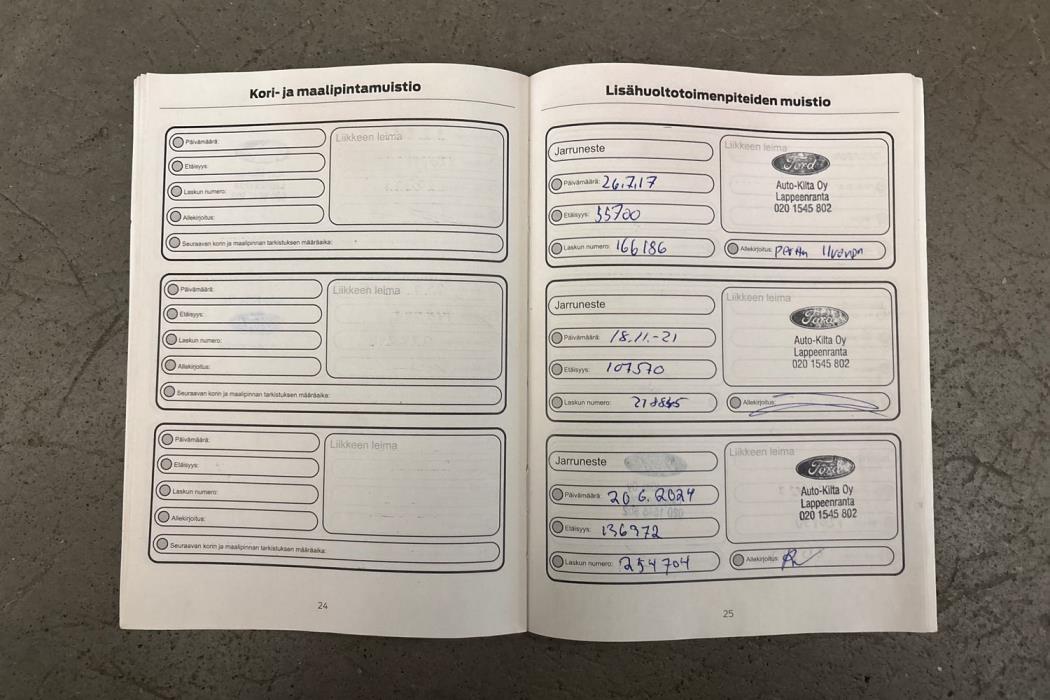 Kori- ja maalipintamuistio
Päivämäärä:
Liikkeen leima
Etäisyys:
Laskun numero:
Allekirjoitus:
Seuraavan korin ja maalipinnan tarkistuksen määräaika:
Päivämäärä:
Liikkeen leima
Etäisyys:
Laskun numero:
Allekirjoitus:
Seuraavan korin ja maalipinnan tarkistuksen määräaika:
Päivämäärä:
Liikkeen leima
Etäisyys:
Laskun numero:
Allekirjoitus:
Seuraavan korin ja maalipinnan tarkistuksen määräaika:
24
Lisähuoltotoimenpiteiden muistio
Jarruneste
Päivämäärä: 26.7.17
Etäisyys: 55700
Laskun numero: 166186
Liikkeen leima
Ford
Auto-Kilta Oy
Lappeenranta
020 1545 802
Allekirjoitus:
Jarruneste
Päivämäärä: 18.11.-21
Etäisyys: 107570
Laskun numero:
Liikkeen leima
Ford
Auto-Kilta Oy
Lappeenranta
020 1545 802
Allekirjoitus:
Jarruneste
Päivämäärä: 20.6.2024
Etäisyys: 136972
Laskun numero: 254704
Liikkeen leima
Ford
Auto-Kilta Oy
Lappeenranta
020 1545 802
Allekirjoitus:
25